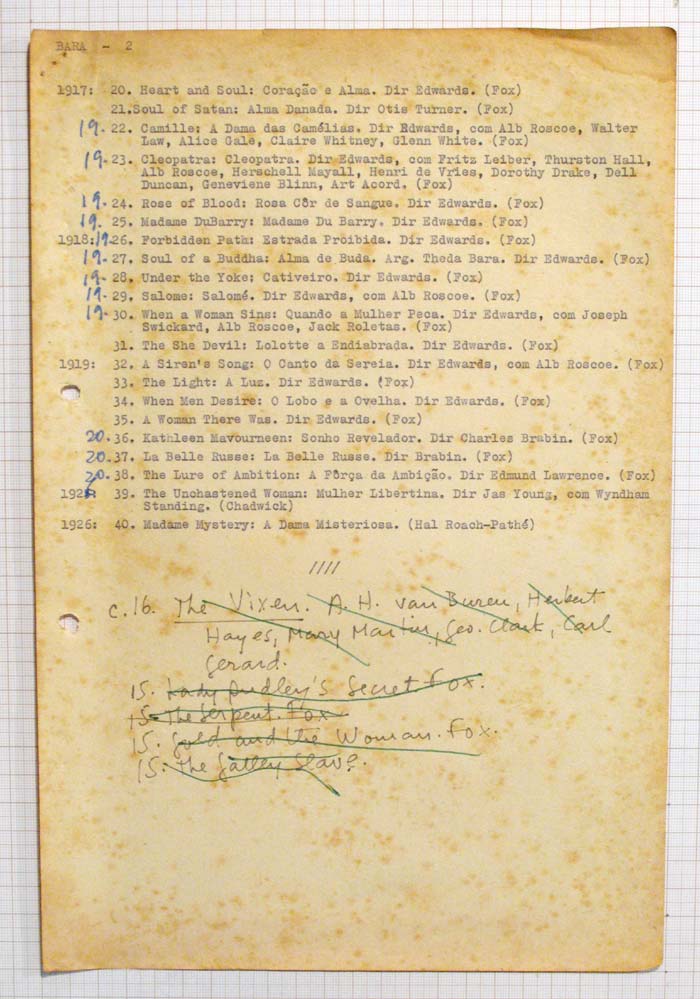 BARA - 2
1917: 20. Heart and Soul: Coração e Alma. Dir Edwards. (Fox)
21.Soul of Satan: Alma Danada. Dir Otis Turner. (Fox)
19. 22. Camille: A Dama das Camélias. Dir Edwards, com Alb Roscoe, Walter
Law, Alice Gale, Claire Whitney, Glenn White. (Fox)
19. 23. Cleopatra: Cleopatra. Dir Edwards, com Fritz Leiber, Thurston Hall,
Alb Roscoe, Herschell Mayall, Henri de Vries, Dorothy Drake, Dell
Duncan, Geneviene Blinn, Art Acord. (Fox)
19. 24. Rose of Blood: Rosa Côr de Sangue. Dir Edwards. (Fox)
19. 25. Madame DuBarry: Madame Du Barry. Dir Edwards. (Fox)
1918: 19. 26. Forbidden Path: Estrada Proibida. Dir Edwards. (Fox)
19. 27. Soul of a Buddha: Alma de Buda. Arg. Theda Bara. Dir Edwards. (Fox)
19. 28. Under the Yoke: Cativeiro. Dir Edwards. (Fox)
19. 29. Salome: Salomé. Dir Edwards, com Alb Roscoe. (Fox)
19. 30. When a Woman Sins: Quando a Mulher Peca. Dir Edwards, com Joseph
Swickard, Alb Roscoe, Jack Roletas. (Fox)
31. The She Devil: Lolotte a Endiabrada. Dir Edwards. (Fox)
1919: 32. A Siren's Song: O Canto da Sereia. Dir Edwards, com Alb Roscoe. (Fox)
33. The Light: A Luz. Dir Edwards. (Fox)
34. When Men Desire: O Lobo e a Ovelha. Dir Edwards. (Fox)
35. A Woman There Was. Dir Edwards. (Fox)
20. 36. Kathleen Mavourneen: Sonho Revelador. Dir Charles Brabin. (Fox)
20. 37. La Belle Russe: La Belle Russe. Dir Brabin. (Fox)
20. 38. The Lure of Ambition: A Fôrça da Ambição. Dir Edmund Lawrence. (Fox)
39. The Unchastened Woman: Mulher Libertina. Dir Jas Young, com Wyndham
Standing. (Chadwick)
1926: 40. Madame Mystery: A Dama Misteriosa. (Hal Roach-Pathé)
////
c.16. The Vixen. A. H. van Buren, Herbert
Hayes, Mary Martin, Geo. Clark, Carl
Gerard.
15. Lady Audley's Secret. Fox.
15. The Serpent. Fox
15. Gold and the Woman. Fox.
15. The Galley Slave.